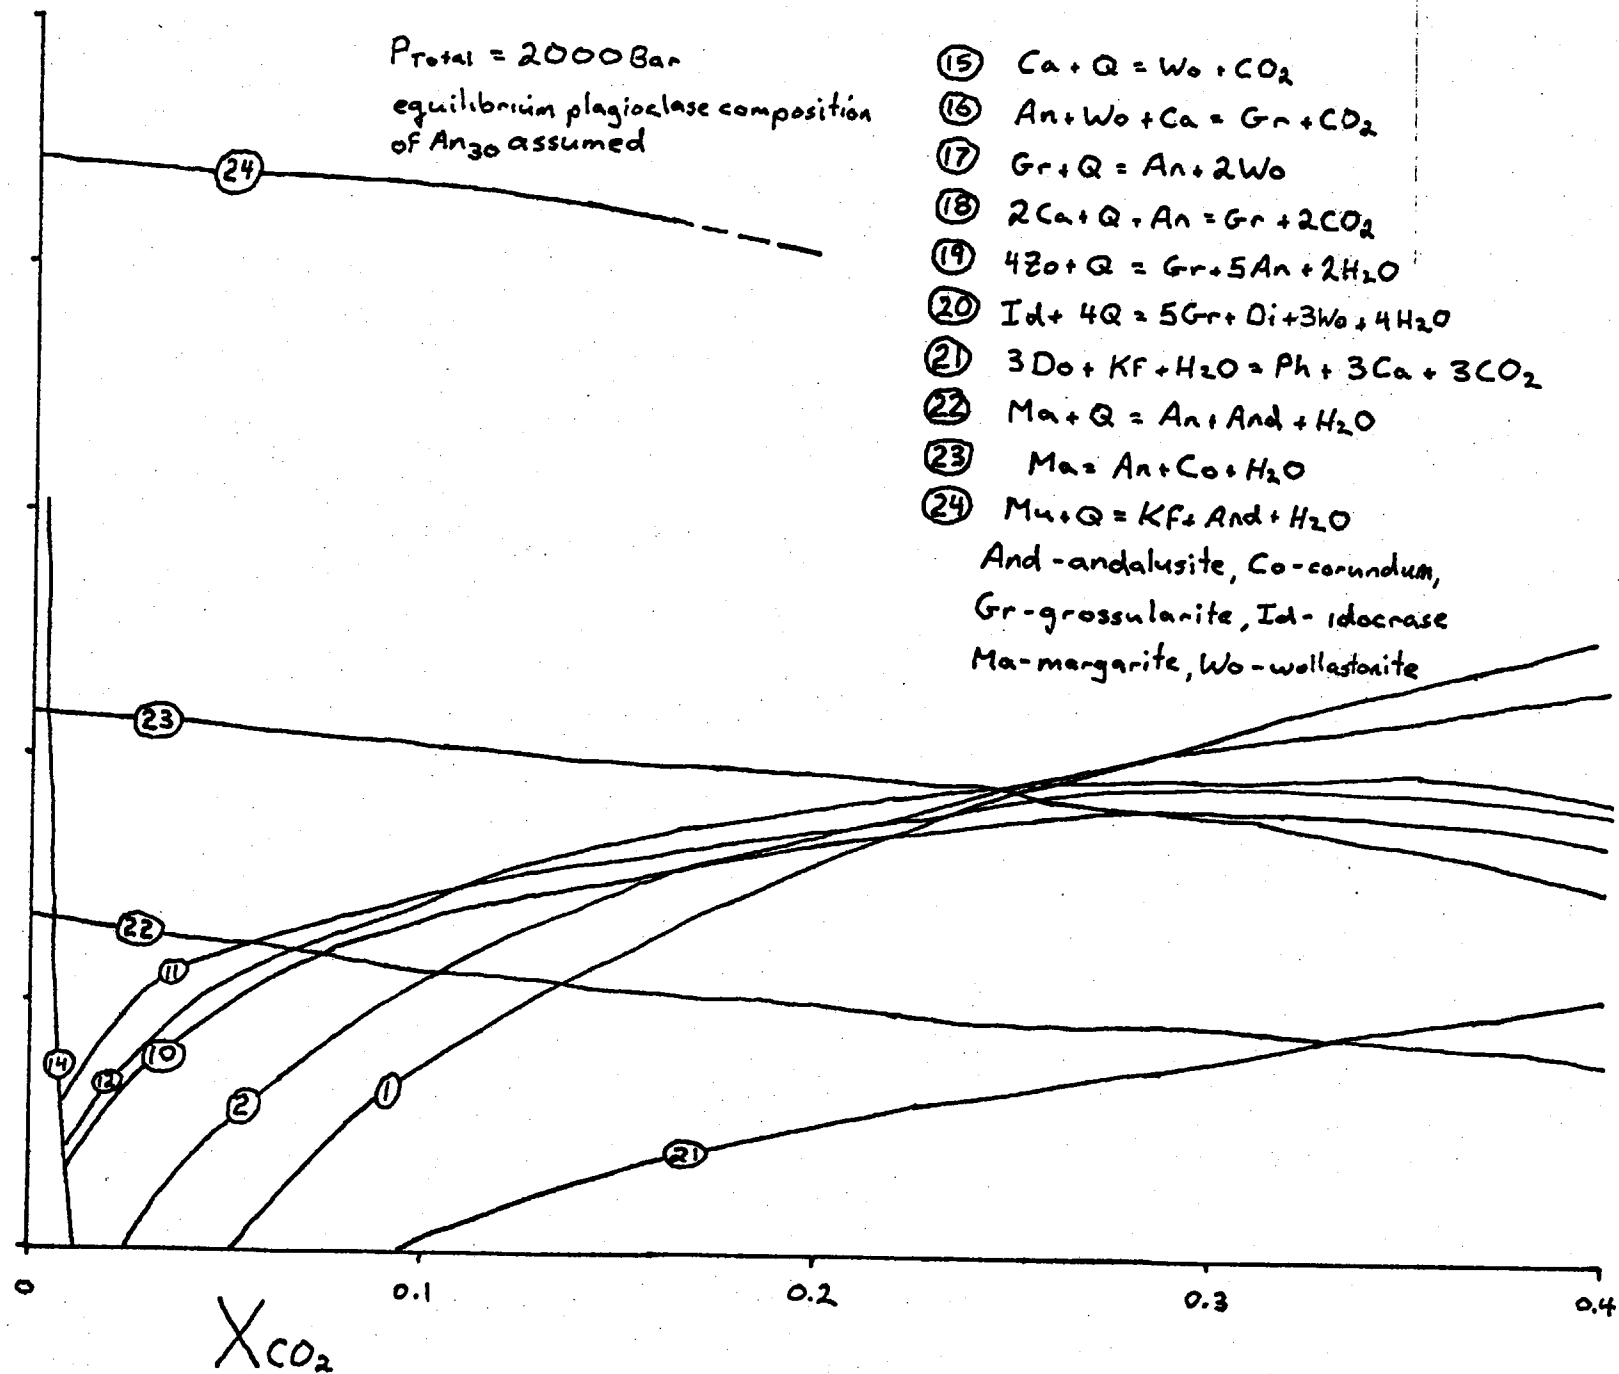 P_Total = 2000 Bar
equilibrium plagioclase composition
of An30 assumed
⑮ Ca + Q = Wo + CO2
⑯ An + Wo + Ca = Gr + CO2
⑰ Gr + Q = An + 2Wo
⑱ 2Ca + Q + An = Gr + 2CO2
⑲ 4Zo + Q = Gr + 5An + 2H2O
⑳ Id + 4Q = 5Gr + Di + 3Wo + 4H2O
㉑ 3Do + Kf + H2O = Ph + 3Ca + 3CO2
㉒ Ma + Q = An + And + H2O
㉓ Ma = An + Co + H2O
㉔ Mu + Q = Kf + And + H2O
And - andalusite, Co - corundum,
Gr - grossularite, Id - idocrase
Ma - margarite, Wo - wollastonite
24
23
22
11
14
12
10
2
1
21
0
0.1
0.2
0.3
0.4
XCO2